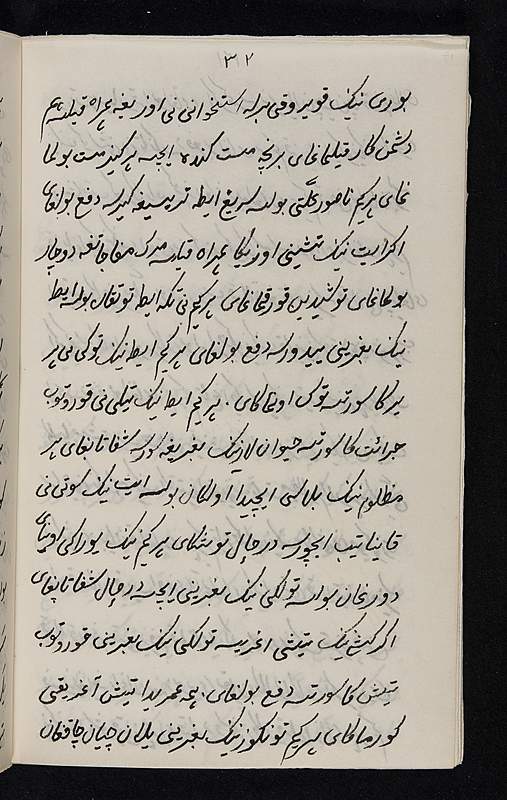 ۳۲
بوری نینک قویروقی بیرله استخوانی نی اوزیغه همراه قیلسه هم
دشمن کار قیلماغای بریچه مست کنده ایچسه هرگیز مست بولما
غای هر کیم ناصور بولسه ایط تربیسیغه کیرسه دفع بولغای
اکر ایت نینک تیشینی اوزیکا همراه قیلسه مرک مفاجاتغه دوچار
بولماغای توشیدین قورقماغای هر کیم نی تکه ایط توتقان بولسه ایط
نینک بغیرینی ییدورسه دفع بولغای هر کیم ایط نینک توکی نی هر
یرکا سورتسه توک اونماکای . هر کیم ایط نینک تیلی نی قوروتوب
جراحت کا سورتسه حیوان لارنینک بغریغه شفا تاپغای هر
مظلوم نینک بلاسی ایچیدا اولکان بولسه ایت نینک سوتی نی
قایناتیب ایچورسه درحال توشکای هر کیم نینک یوراکی اوینای
دورغان بولسه تولکی نینک بغیرینی ایچسه درحال شفا تاپغای
اکر کیشی نینک تیشی اغریسه تولکی نینک بغیرینی قوروتوب
تیش کا سورتسه دفع بولغای . همه عمریدا تیش آغریقنی
کورماکای هر کیم تونکوزنینک بغرینی ییلان چیان چاققان